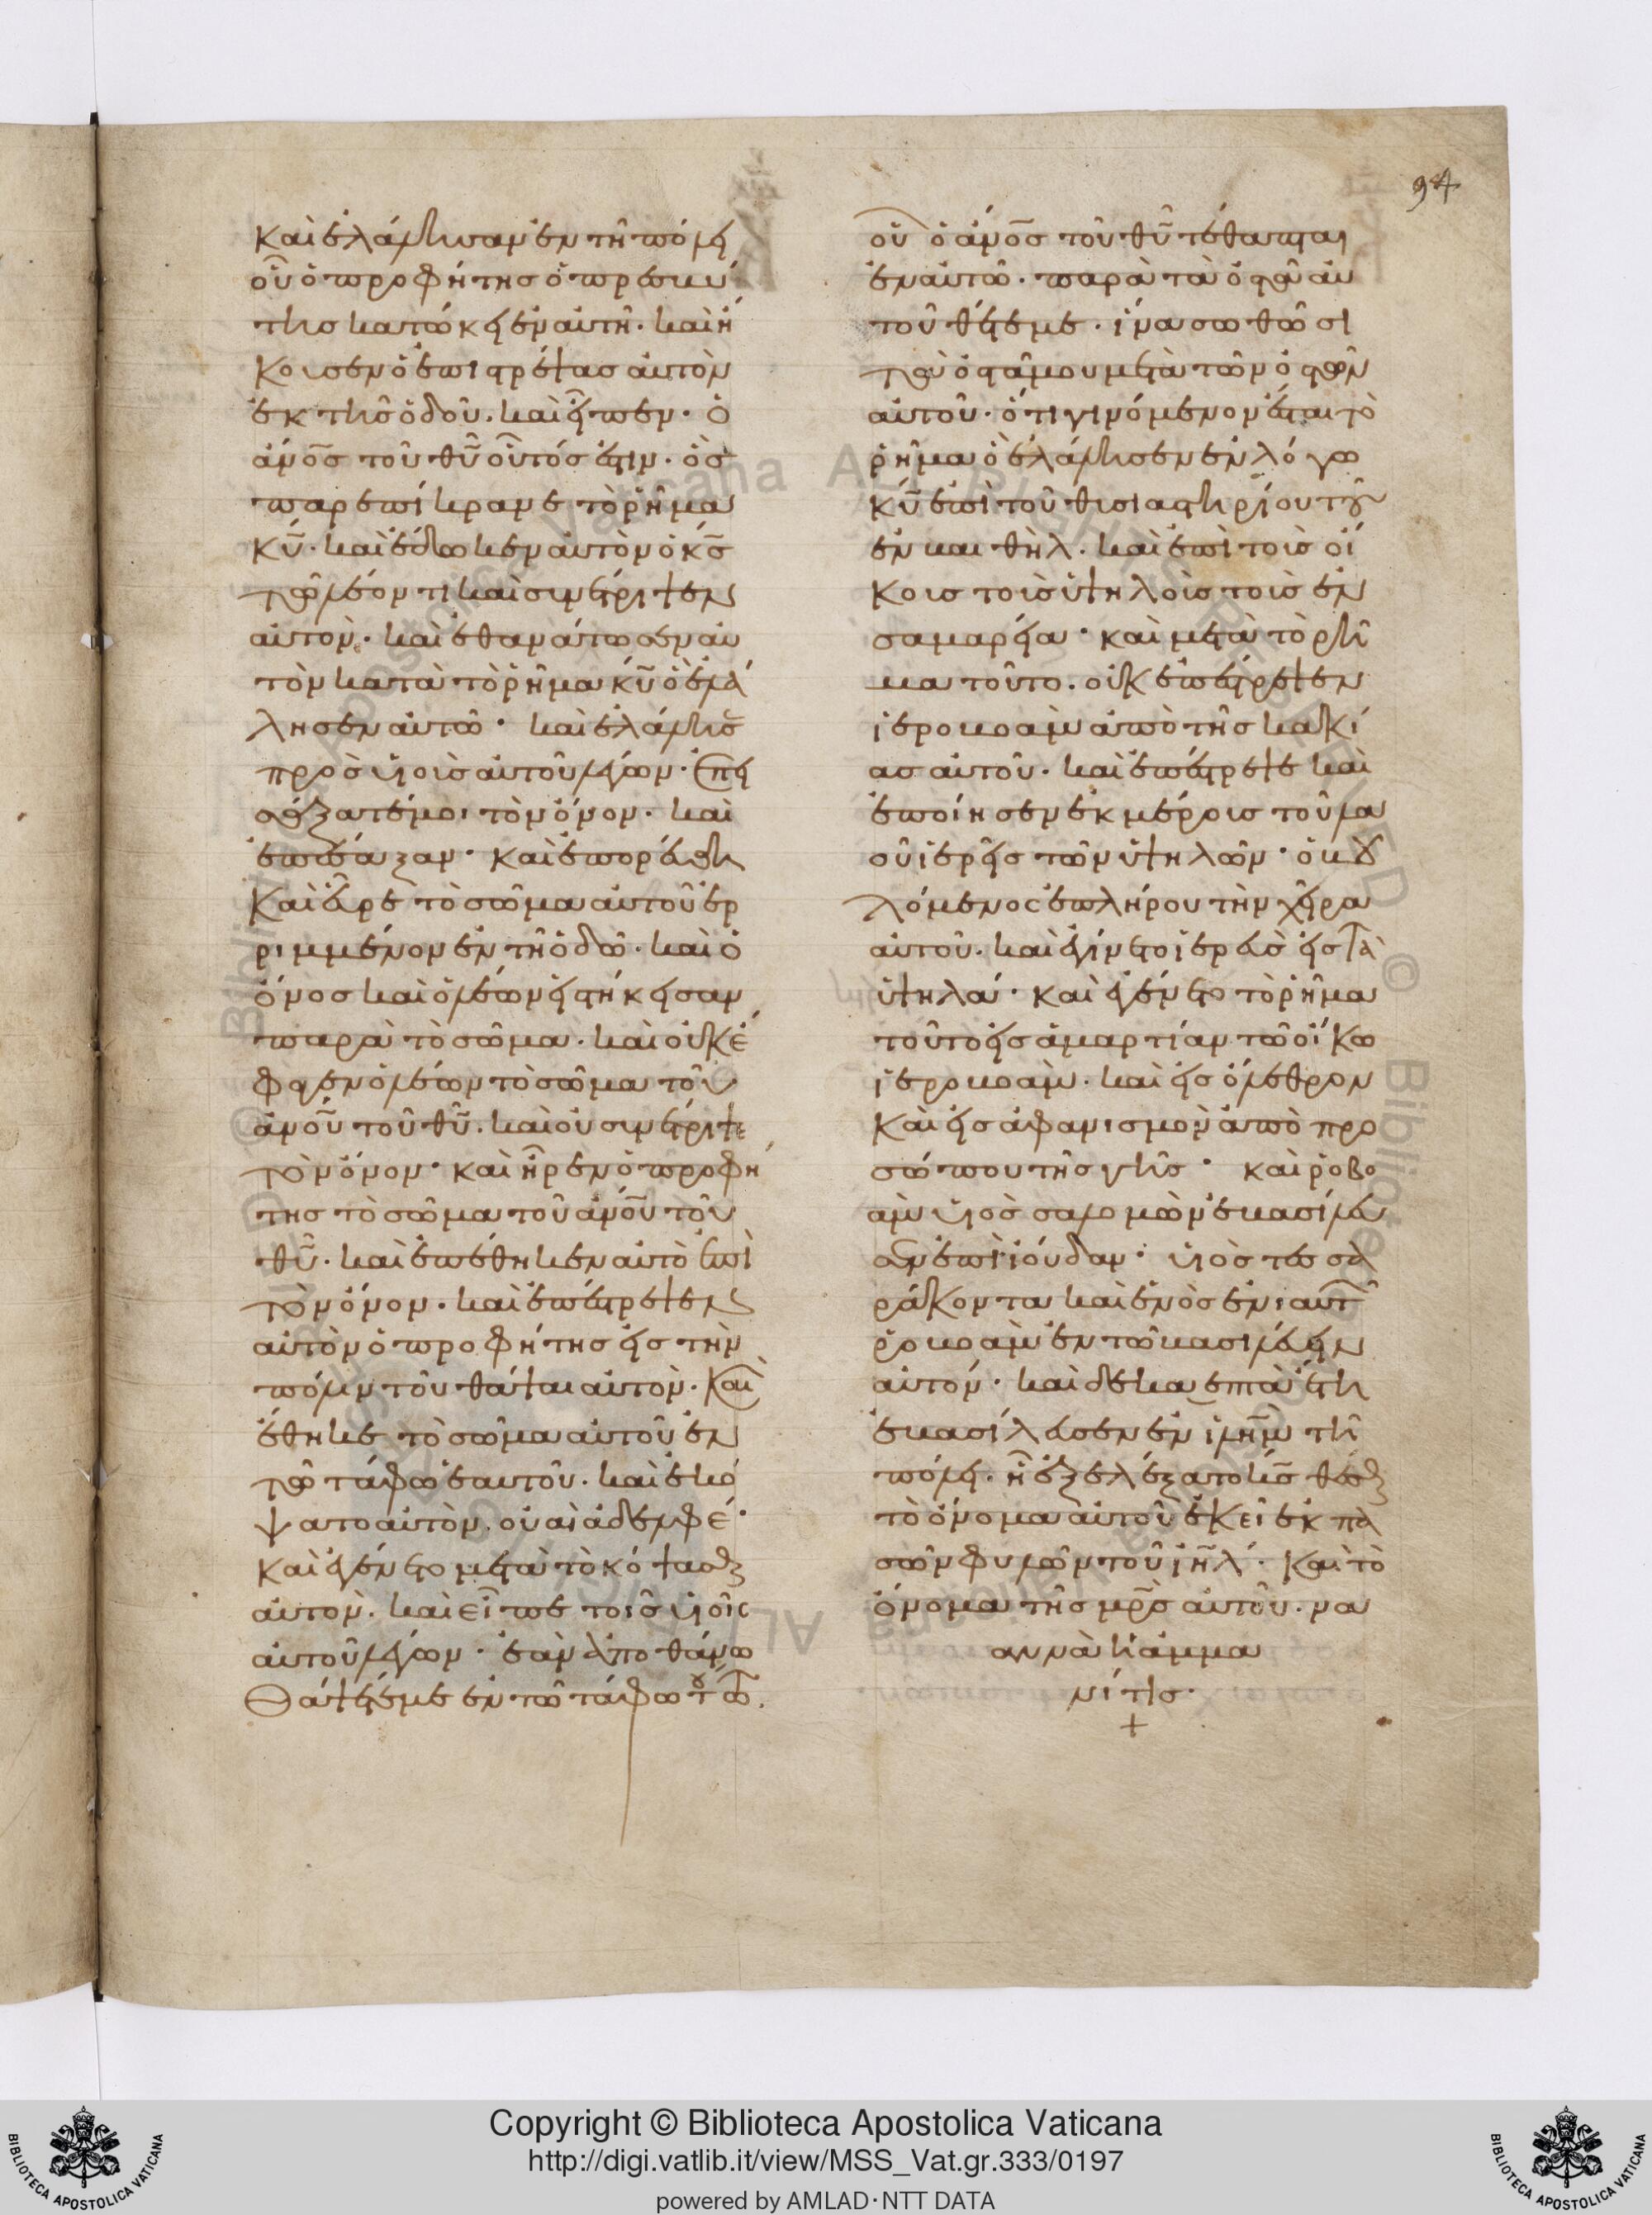 94
καὶ ἐλάλησαν ἐν τῆ πόλει
οὗ ὁ προφήτης ὁ πρεσβύ
της κατώκει ἐν αὐτῆ· καὶ ἤ
κουσεν ὁ ἐπιστρέψας αὐτὸν
ἐκ τῆς ὁδοῦ· καὶ εἶπεν· ὁ
ἄνο̅σ̅ τοῦ θυ̅ οὗτός ἐστιν· ὃς
παρεπίκρανε τὸ ῥῆμα
κυ̅· καὶ ἔδωκεν αὐτὸν ὁ κς̅
τῶ λέοντι καὶ συνέτριψεν
αὐτὸν· καὶ ἐθανάτωσεν αὐ
τὸν κατὰ τὸ ῥῆμα κυ̅ ὃ ἐλά
λησεν αὐτῶ· καὶ ἐλάλησε
πρὸς υἱοὺς αὐτοῦ λέγων· ἐπι
σάξατέ μοι τὸν ὄνον· καὶ
ἐπέσαξαν· καὶ ἐπορεύθη
καὶ εὗρε τὸ σῶμα αὐτοῦ ἐρ
ριμμένον ἐν τῆ ὁδῶ· καὶ ὁ
ὄνος καὶ ὁ λέων εἱστήκεισαν
παρὰ τὸ σῶμα· καὶ οὐκ ἔ
φαγεν ὁ λέων τὸ σῶμα τοῦ
ἀνο̅υ̅ τοῦ θυ̅· καὶ οὐ συνέτριψε
τὸν ὄνον· καὶ ἦρεν ὁ προφή
της τὸ σῶμα τοῦ ἀνο̅υ̅ τοῦ
θυ̅· καὶ ἐπέθηκεν αὐτὸ ἐπὶ
τὸν ὄνον· καὶ ἐπέστρεψεν
αὐτὸν ὁ προφήτης εἰς τὴν
πόλιν τοῦ θάψαι αὐτὸν· καὶ
ἔθηκε τὸ σῶμα αὐτοῦ ἐν
τῶ τάφω ἑαυτοῦ· καὶ ἐκό
ψατο αὐτὸν· οὐαὶ ἀδελφέ·
καὶ ἐγένετο μετὰ τὸ κόψασθαι
αὐτὸν· καὶ εἶπε τοῖς υἱοῖς
αὐτοῦ λέγων· ἐὰν ἀποθάνω
θάψετέ με ἐν τῶ τάφω τούτω.
οὗ ὁ ἄνο̅σ̅ τοῦ θυ̅ τέθαπται
ἐν αὐτῶ· παρὰ τὰ ὀστᾶ αὐ
τοῦ θέτε με· ἵνα σωθῶσι
τὰ ὀστᾶ μου μετὰ τῶν ὀστῶν
αὐτοῦ· ὅτι γινόμενον ἔσται τὸ
ῥῆμα ὃ ἐλάλησεν ἐν λόγω
κυ̅ ἐπὶ τοῦ θυσιαστηρίου τοῦ
ἐν βαιθὴλ· καὶ ἐπὶ τοὺς οἴ
κους τοὺς ὑψηλοὺς τοὺς ἐν
σαμαρεία· καὶ μετὰ τὸ ῥῆ
μα τοῦτο· οὐκ ἐπέστρεψεν
ἱεροβοὰμ ἀπὸ τῆς κακί
ας αὐτοῦ· καὶ ἐπέστρεψε καὶ
ἐποίησεν ἐκ μέρους τοῦ λα
οῦ ἱερεῖς τῶν ὑψηλῶν· ὁ βου
λόμενος ἐπλήρου τὴν χεῖρα
αὐτοῦ· καὶ ἐγίνετο ἱερεὺς εἰς τὰ
ὑψηλά· καὶ ἐγένετο τὸ ῥῆμα
τοῦτο εἰς ἁμαρτίαν τῶ οἴκω
ἱεροβοὰμ· καὶ εἰς ὄλεθρον
καὶ εἰς ἀφανισμὸν ἀπὸ προ
σώπου τῆς γῆς· καὶ ῥοβο
ὰμ υἱὸς σαλομὼν ἐβασίλευ
σεν ἐπὶ ἰούδαν· υἱὸς τεσσα
ράκοντα καὶ ἑνὸς ἐνιαυτοῦ
ῥοβοὰμ ἐν τῶ βασιλεύειν
αὐτόν· καὶ δεκαεπτὰ ἔτη
ἐβασίλευσεν ἐν ἰλη̅μ̅ τῆ
πόλει· ἣ ἐξελέξατο κς̅ θέσθαι
τὸ ὄνομα αὐτοῦ ἐκεῖ ἐκ πα
σῶν φυλῶν τοῦ ἰη̅λ̅· καὶ τὸ
ὄνομα τῆς μρ̅ς̅ αὐτοῦ· να
αννὰ ἡ ἀμμα
νίτις·
+
Copyright © Biblioteca Apostolica Vaticana
http://digi.vatlib.it/view/MSS_Vat.gr.333/0197
powered by AMLAD·NTT DATA